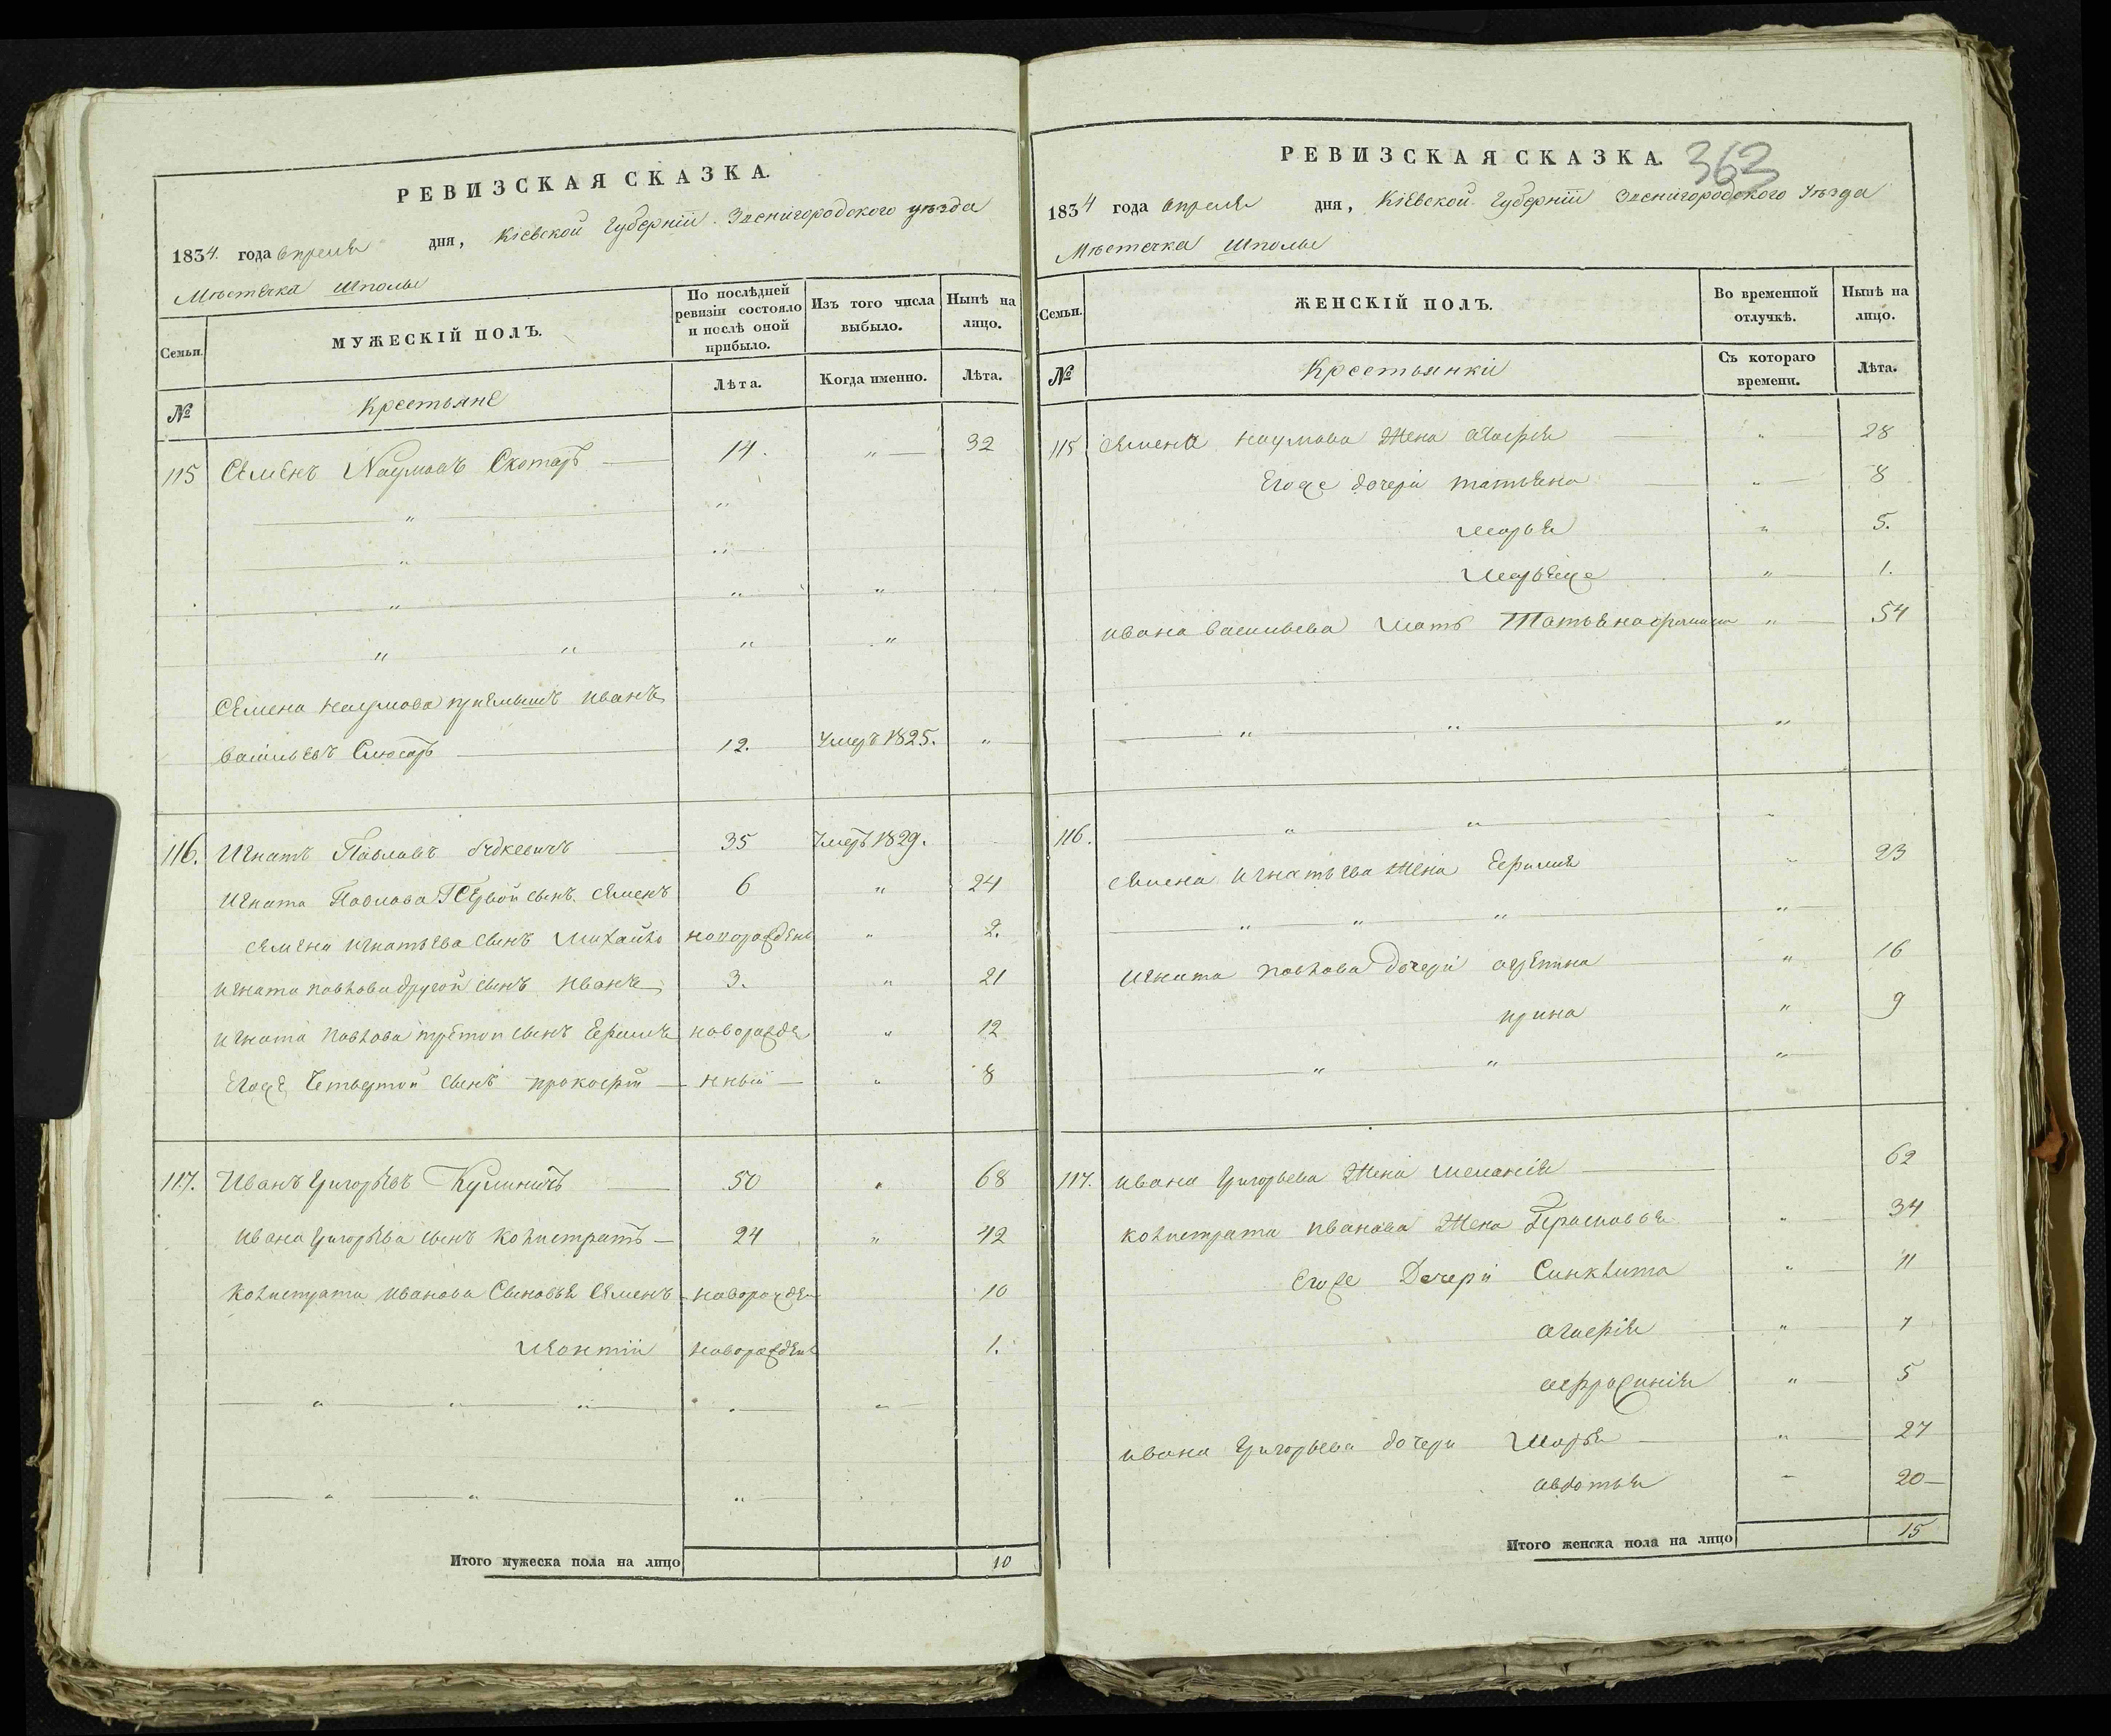 РЕВИЗСКАЯ СКАЗКА.
1834. года апреля дня, Кіевской Губерніи Звенигородского уѣзда
Мѣстечка Шполы
Семьи. МУЖЕСКІЙ ПОЛЪ. По послѣдней ревизіи состояло и послѣ оной прибыло. Изъ того числа выбыло. Нынѣ на лицо.
№ Крестьяне Лѣта. Когда именно. Лѣта.
115 Семенъ Наумовъ Скотарь 14. " 32
Семена Наумова приемышъ Иванъ
Васильевъ Слюсарь 12. Умеръ 1825. "
116. Игнатъ Павловъ 35 Умеръ 1829.
Игната Павлова первой сынъ Семенъ 6 " 24
Семена Игнатьева сынъ Михайло новорожденъ " 2.
Игната Павлова другой сынъ Иванъ 3. " 21
Игната Павлова третои сынъ Ефимъ новорожде " 12
Егоже Четвертой сынъ прокофiй нный " 8
117. Иванъ Григорьевъ Кулиничъ 50 " 68
Ивана Григорьева сынъ Колистратъ 24 " 42
Колистрата Иванова Сыновья Семенъ новорожден 10
Леонтiй новорожден 1.
Итого мужеска пола на лицо 10
РЕВИЗСКАЯ СКАЗКА.
363
1834 года апреля дня, Кіевской Губерніи Звенигородского Уѣзда
Мѣстечка Шполы
Семьи. ЖЕНСКІЙ ПОЛЪ. Во временной отлучкѣ. Нынѣ на лицо.
№ Крестьянки Съ котораго времени. Лѣта.
115 Семена Наумова Жена Агафiя " 28
Егоже дочери татьяна " 8
Марья " 5.
" 1.
Ивана Васильева Мать Татьяна " 54
116.
Семена Игнатьева Жена Ефимия " 23
Игната Павлова Дочери " 16
ирина " 9
117. Ивана Григорьева Жена Меланiя 62
Колистрата Иванова Жена " 34
Егоже Дочери Синклита " 11
агафiя " 7
" 5
Ивана Григорьева дочери Марья " 27
авдотья 20
Итого женска пола на лицо 15